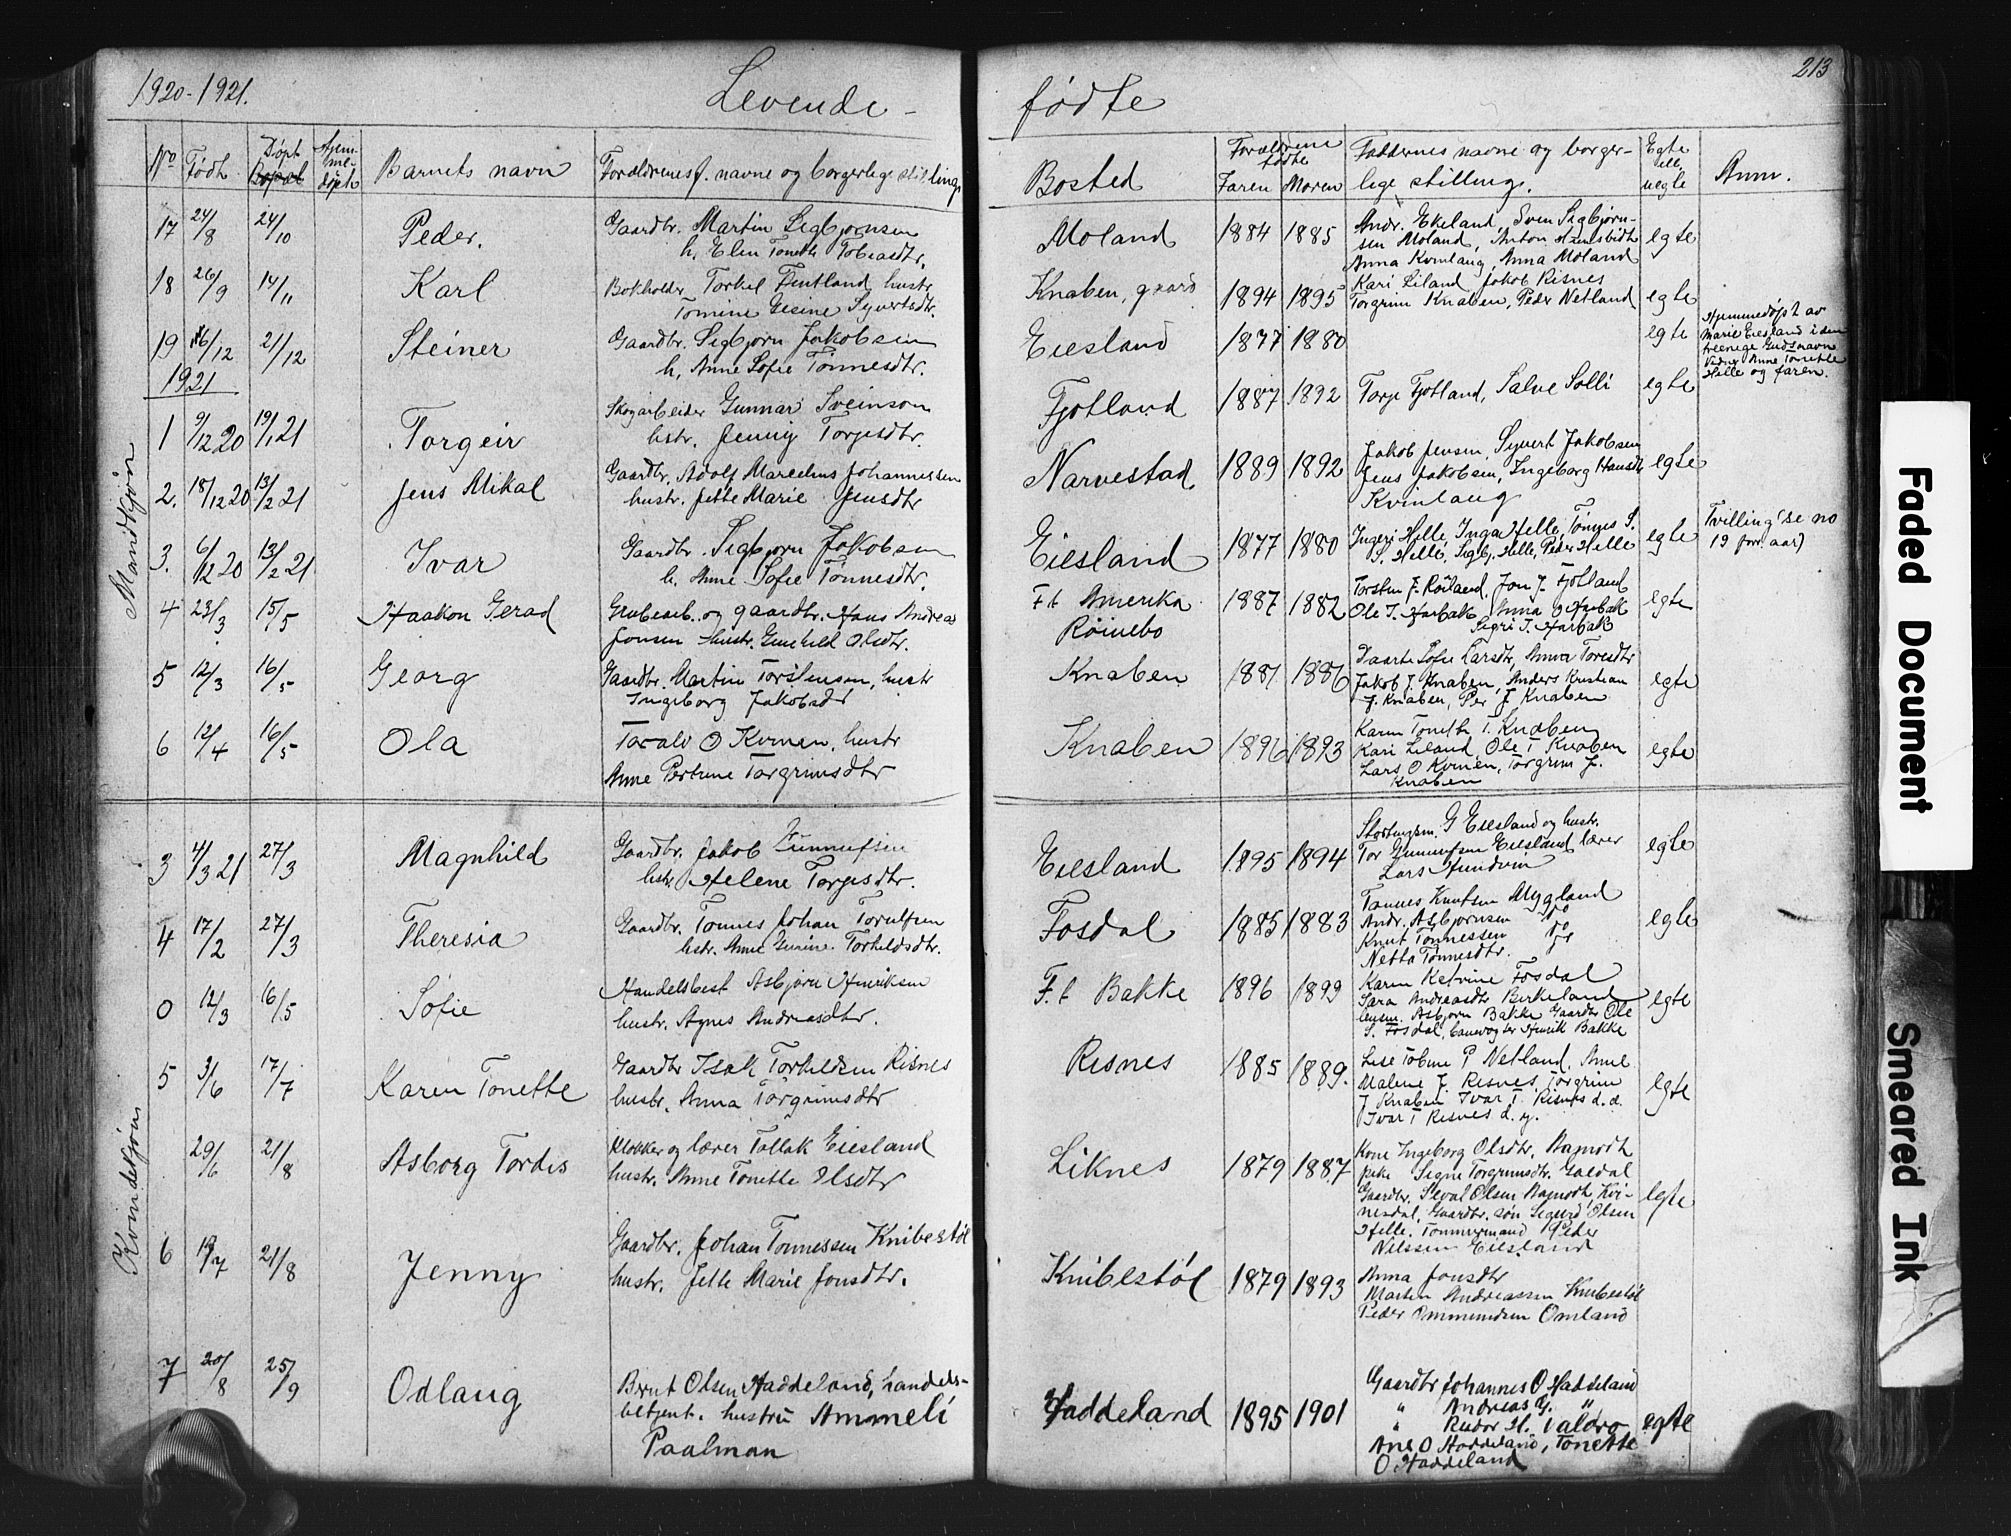 213
1920-1921.
Levende -
fødte
No
Født
Døpt
Hjem-
me-
døpt
Barnets navn
Forældrenes f. navne og borgerlige stilling
Bosted
Forældrene
fødte
Faren
Moren
Faddernes navne og borger-
lige stilling.
Egte
ell.
uegte
Anm.
Mandkjøn
17 24/8 24/10 Peder.
Gaardbr. Martin Sigbjørnsen
h. Elen Tonette Tobiasdtr.
Moland 1884 1885
Andr. Ekeland, Sven Sigbjørn-
sen Moland, Anton
Anna Kvinlaug, Anna Moland
egte
18 26/9 14/11 Karl
Bokholder Torkel Fintland hustr.
Tomine Gesine Syvertsdtr.
Knaben, gaard 1894 1895
Kari Liland, Jakob Risnes
Torgrim Knaben, Peder Netland
egte
19 16/12 21/12 Steiner
Gaardbr. Sigbjørn Jakobsen
h. Anne Sofie Tønnesdtr.
Eiesland 1877 1880 egte
Hjemmedøpt av
Marie Eiesland i den
treenige Guds navn
Vidner Anne Tonette
Hille og faren.
1921
1 9/12 20 19/1 21 Torgeir
Skogarbeider Gunnar Sveinson
hstr. Jenny Torjesdtr.
Fjotland 1887 1892
Torje Fjotland, Salve Solli
egte
2. 18/12 20 13/2 21 Jens Mikal
Gaardbr. Adolf Marcelius Johannessen
hustr. Jette Marie Jensdtr
Narvestad 1889 1892
Jakob Jensen, Syvert Jakobsen
Jens Jakobsen, Ingeborg Hansdtr
Kvinlaug
egte
3. 6/12 20 13/2 21 Ivar
Gaardbr. Sigbjørn Jakobsen
h. Anne Sofie Tønnesdtr.
Eiesland 1877 1880
Ingeri Hille, Inga Hille, Tønnes S.
S. Hille, Sigb. Hille, Peder Hille
egte
Tvilling (se no
19 forr. aar)
4 23/3 15/5 Haakon Gerad
Grubearb. og gaardbr. Hans Andreas
Jonsen hustr. Gunhild Olsdtr.
F.t Amerika
Røinebo
1887 1882
Torsten J. Røiland, Jon J. Fjotland
Ole T. Harbak, Anna O Harbak
Sigri T. Harbak
egte
5 12/3 16/5 Georg
Gaardbr. Martin Torstensen, hustr
Ingeborg Jakobsdtr
Knaben 1881 1886
Daarte Sofie Larsdtr, Anna Toresdtr
Jakob J. Knaben, Anders Kristian
J. Knaben, Per J Knaben
egte
6 12/4 16/5 Ola
Toralv O Kvinen, hustr
Anne Pertine Torgrimsdtr
Knaben 1896 1893
Karen Tonette T. Knaben
Kari Liland, Ole T Knaben
Lars O Kvinen, Torgrim J.
Knaben
egte
Kvindekjøn
3 4/3 21 27/3 Magnhild
Gaardbr. Jakob Gunnufsen
hstr. Helene Torjesdtr.
Eiesland 1895 1894
Stortingsm. G Eiesland og hustr.
Tor Gunnufsen Eiesland, lærer
Lars
egte
4 17/2 27/3 Theresia
Gaardbr. Tønnes Johan Torulfsen
hstr. Anne Gurine Torkildsdtr.
Fosdal 1885 1883
Tønnes Knutsen Mygland
Andr. Asbjørnsen do
Knut Tønnessen do
Netta Tønnesdtr.
egte
0 12/3 16/5 Sofie
Handelsbest Asbjørn Henriksen
hustr. Agnes Andreasdtr.
F.t Bakke 1896 1899
Karen Katrine Fosdal
Sara Andreasdtr Birkeland
Asbjørn Bakke Gaardbr Ole
S. Fosdal, banevogter Henrik Bakke
egte
5 3/6 17/7 Karen Tonette
Gaardbr Isak Torkildsen Risnes
hustr. Anna Torgrimsdtr
Risnes 1885 1889.
Lise Tobine P Netland, Anne
Malene J. Risnes, Torgrim
J Knaben Ivar T. Risnes d. æ.
Ivar T Risnes d. y.
egte
29/6 21/8 Asborg Tordis
Klokker og lærer Tallak Eiesland
hustr. Anne Tonette Olsdtr
Liknes 1879 1887
Kone Ingeborg Olsdtr, Aamodt
pike Signe Torgrimsdtr. Galdal
Gaardbr. Seval Olsen Aamodt, Kvi-
nesdal, Gaardbr. søn Sigurd Olsen
Hille, Tømmermand Peder
Nilssen Eiesland
egte
6 19/7 21/8 Jenny
Gaardbr. Johan Tønnessen Knibestøl
hustr. Jette Marie Jonsdtr.
Knibestøl 1879 1893
Anna Jonsdtr
Martin Andreassen Knibestøl
Peder Ommundsen Omland
7 20/8 25/9 Odlaug
Bernt Olsen Haddeland, handels-
betjent. hustru Ammeli
Paalman
Haddeland 1895 1901
Gaardbr Johannes O Haddeland
" Andreas G. "
" Reidor H. Valdro
Ane O Haddeland, Tonette
O Haddeland
egte
Faded Document
Smeared Ink